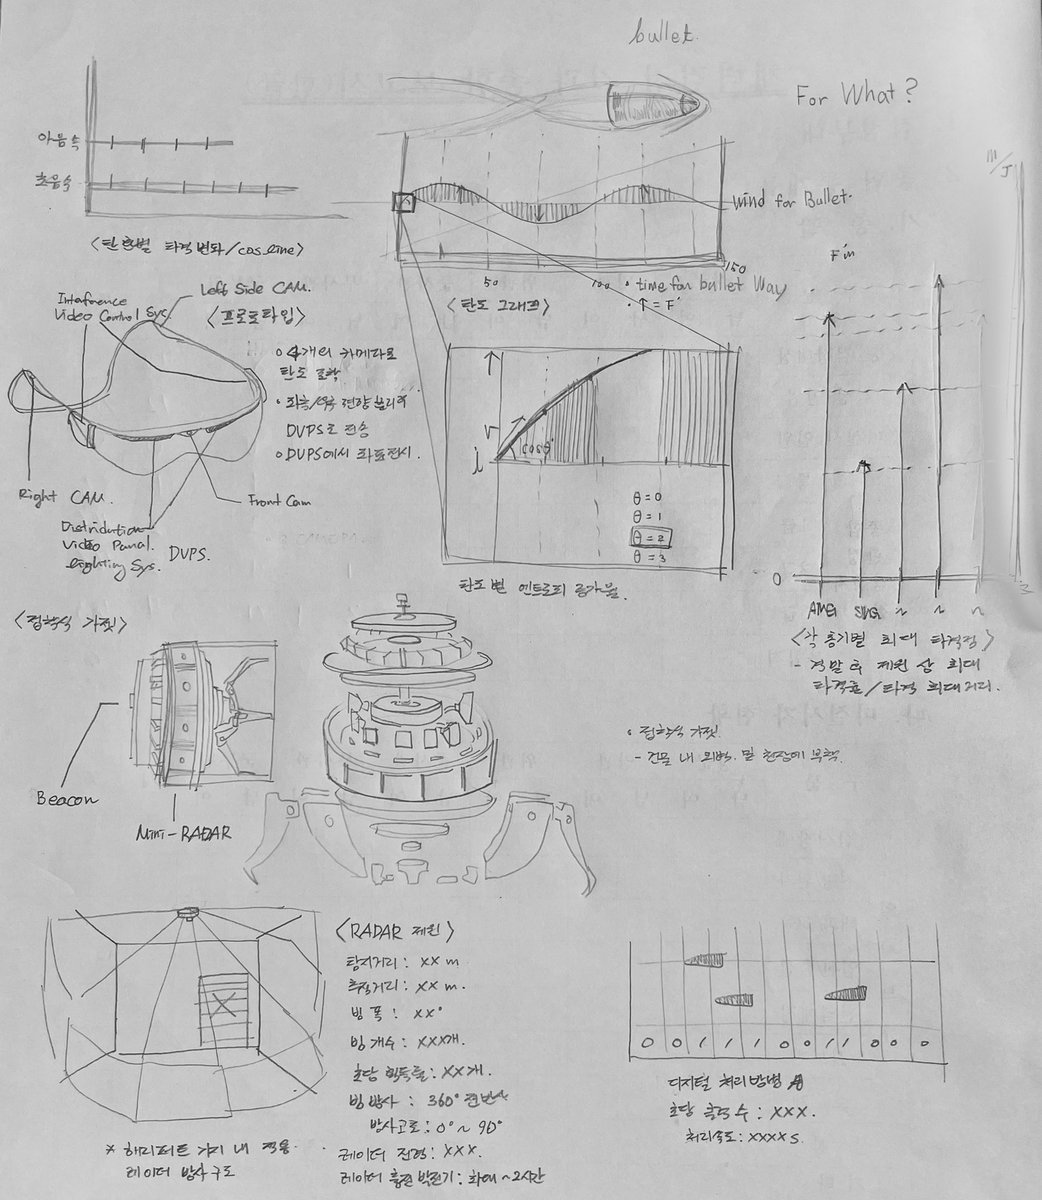 bullet.
For What?
아음속
초음속
<탄환별 타격변화/cos_line>
wind for Bullet.
50
100
150
· time for bullet Way
· ↑ = F'
<탄도 그래프>
Left Side CAM.
Inteference
Video Control Sys.
<프로토타입>
o 4개의 카메라로
탄도 포착
DVPS로 전송
o DVPS에서 좌표전시.
Right CAM.
Front Cam
Distribution
Video Panal.
Lighting Sys.
DVPS.
V
i
cosθ
θ=0
θ=1
θ=2
θ=3
탄도별 엔트로피 증가율.
F'
m/J
0
AMG SMG ~ ~ ~
<각 총기별 최대 타격점>
- 격발 후 제원 상 최대
타격효/타격 최대거리.
<접착식 가젯>
Beacon
Mini-RADAR
o 접착식 가젯.
- 건물 내 외벽. 및 천장에 부착.
<RADAR 제원>
탐지거리 : XX m
추적거리 : XX m.
빔 폭 : XX°
빔 개수 : XXX개.
초당 획득률 : XX개.
빔 방사 : 360° 전반사
방사고로 : 0° ~ 90°
레이더 전력 : XXX.
레이더 출련 발전기 : 최대 ~2시간
레이더 방사구도
0 0 1 1 1 0 0 1 1 0 0 0
디지털 처리방법
초당 촉덕수 : XXX.
처리속도 : XXXX s.